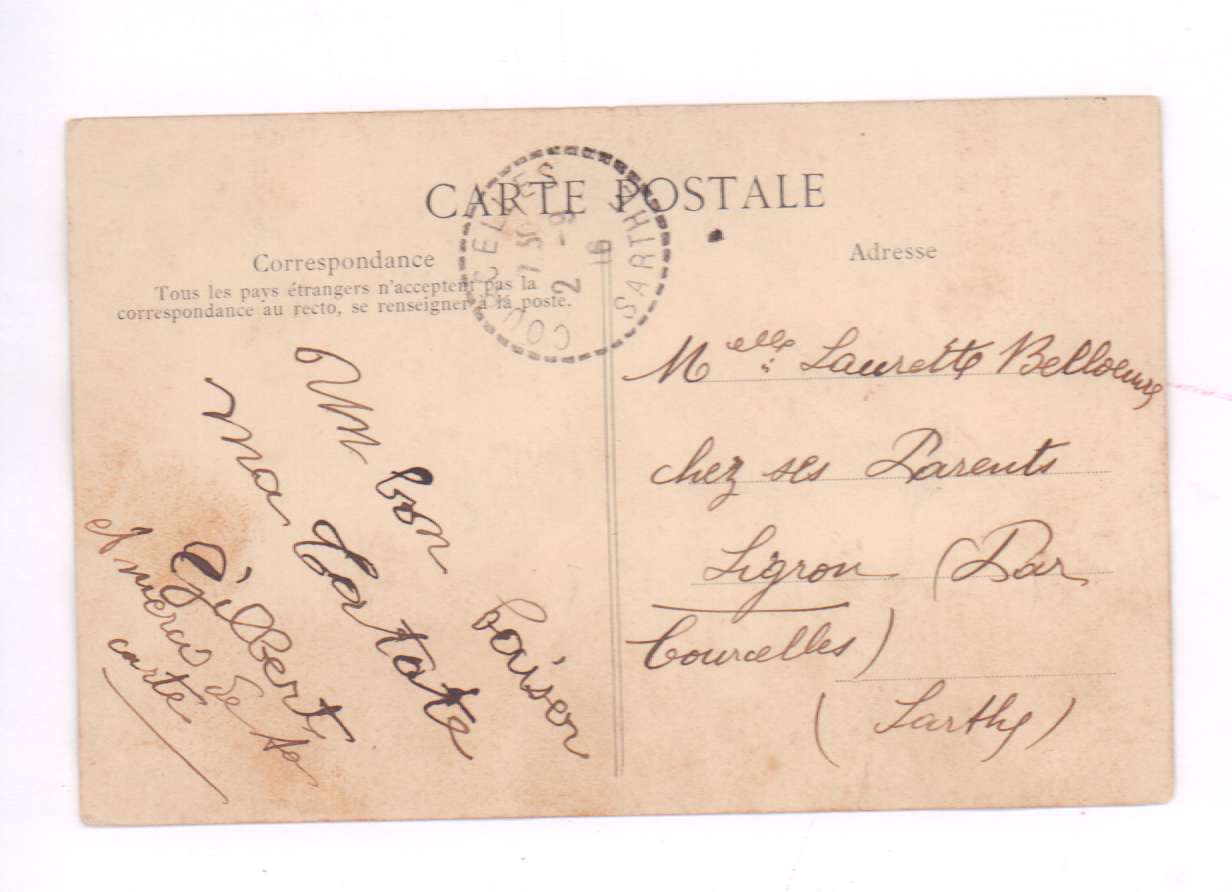 CARTE POSTALE
COURCELLES
SARTHE
7 30
2 -9
16
Correspondance
Tous les pays étrangers n'acceptent pas la
correspondance au recto, se renseigner à la poste.
Un bon baiser
ma
Gilbert
et merci de ta
carte
Adresse
Melle Laurette
chez ses Parents
Ligron (Par
Courcelles)
(Sarthe)